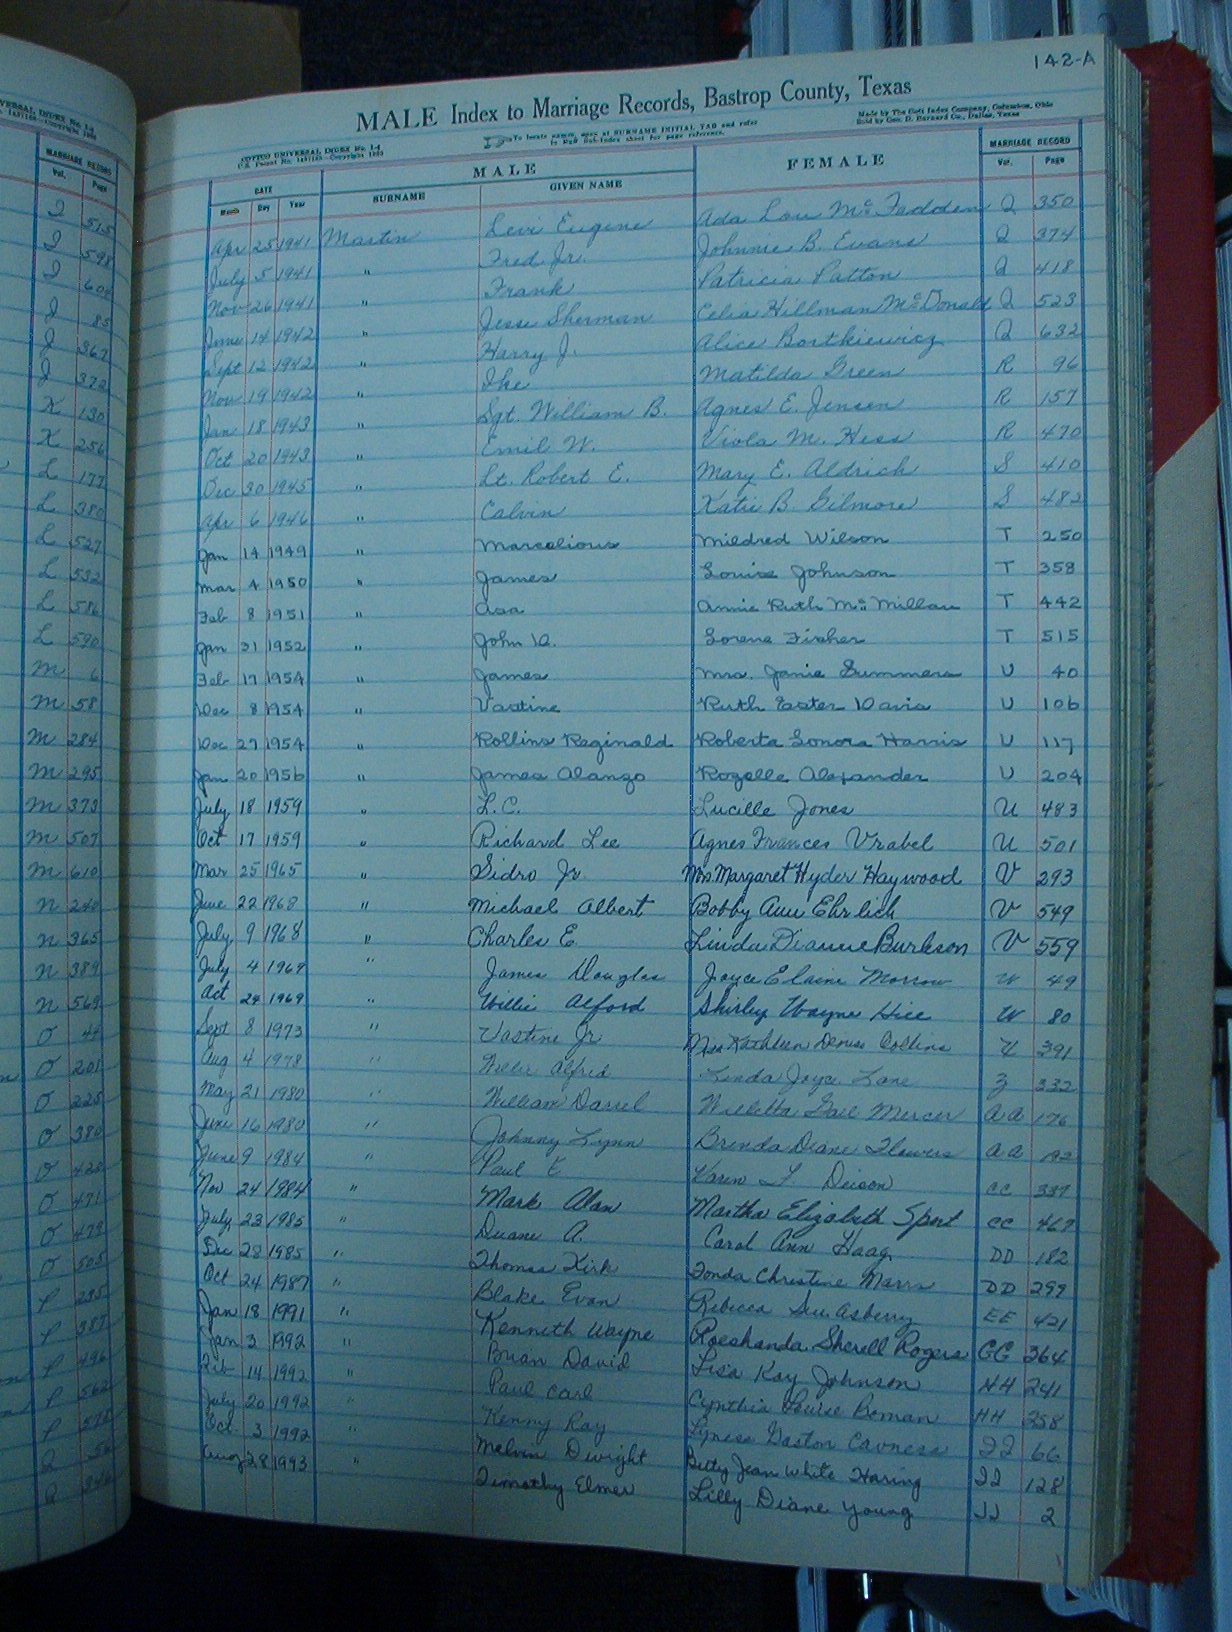 142-A
MALE Index to Marriage Records, Bastrop County, Texas
COTT'S UNIVERSAL INDEX No. 1-4
To locate names, open at SURNAME INITIAL TAB and refer
to Red Sub-Index sheet for page reference.
Made by The Cott Index Company, Columbus, Ohio
Sold by Geo. D. Barnard Co., Dallas, Texas
DATE MALE FEMALE MARRIAGE RECORD
Month Day Year SURNAME GIVEN NAME Vol. Page
Apr 25 1941 Martin Levi Eugene Ada Lou McFadden Q 350
July 5 1941 " Fred Jr. Johnnie B. Evans Q 374
Nov 26 1941 " Frank Patricia Patton Q 418
June 14 1942 " Jesse Sherman Celia Hillman McDonald Q 523
Sept 12 1942 " Harry J. Alice Bortkiewicz Q 632
Nov 19 1942 " Ike Matilda Green R 96
Jan 18 1943 " Sgt. William B. Agnes E. Jensen R 157
Oct 20 1943 " Emil W. Viola M. Hess R 470
Dec 30 1945 " Lt. Robert E. Mary E. Aldrich S 410
Apr 6 1946 " Calvin Katie B. Gilmore S 482
Jan 14 1949 " Marcelious Mildred Wilson T 250
Mar 4 1950 " James Louise Johnson T 358
Feb 8 1951 " Asa Annie Ruth McMillan T 442
Jan 31 1952 " John D. Lorene Fisher T 515
Feb 17 1954 " James Mrs. Janie Summers U 40
Dec 8 1954 " Vastine Ruth Easter Davis U 106
Dec 27 1954 " Rollins Reginald Roberta Lonora Harris U 117
Jan 20 1956 " James Alanzo Rozelle Alexander U 204
July 18 1959 " L.C. Lucille Jones U 483
Oct 17 1959 " Richard Lee Agnes Frances Vrabel U 501
Mar 25 1965 " Sidro Jr. Mrs Margaret Hyder Haywood V 293
June 22 1968 " Michael Albert Bobby Ann Ehrlich V 549
July 9 1968 " Charles E. Linda Dianne Burleson V 559
July 4 1969 " James Douglas Joyce Elaine Morrow W 49
Oct 24 1969 " Willie Alford Shirley Wayne Hice W 80
Sept 8 1973 " Vastine Jr Kathleen Denise Collins 391
Aug 4 1978 " Willie Alfred Linda Joyce Lane Z 332
May 21 1980 " William Darrel Willetta Gail Mercer AA 176
June 16 1980 " Johnny Lynn Brenda Diane Flowers AA 192
June 9 1984 " Paul E Karen L. Deison CC 337
Nov 24 1984 " Mark Alan Martha Elizabeth Spert CC 467
July 23 1985 " Duane A. Carol Ann Haag DD 182
Dec 28 1985 " Thomas Kirk Fonda Christine Marrs DD 299
Oct 24 1987 " Blake Evan Rebecca Sue Asberry EE 421
Jan 18 1991 " Kenneth Wayne Roeshanda Sherell Rogers GG 364
Jan 3 1992 " Brian David Lisa Kay Johnson HH 241
Feb 14 1992 " Paul Carl Cynthia Louise Boman HH 258
July 20 1992 " Kenny Ray Lyness Gaston Cavness II 66
Oct 3 1992 " Melvin Dwight Betty Jean White Haring II 128
Aug 28 1993 " Timothy Elmer Lilly Diane Young JJ 2